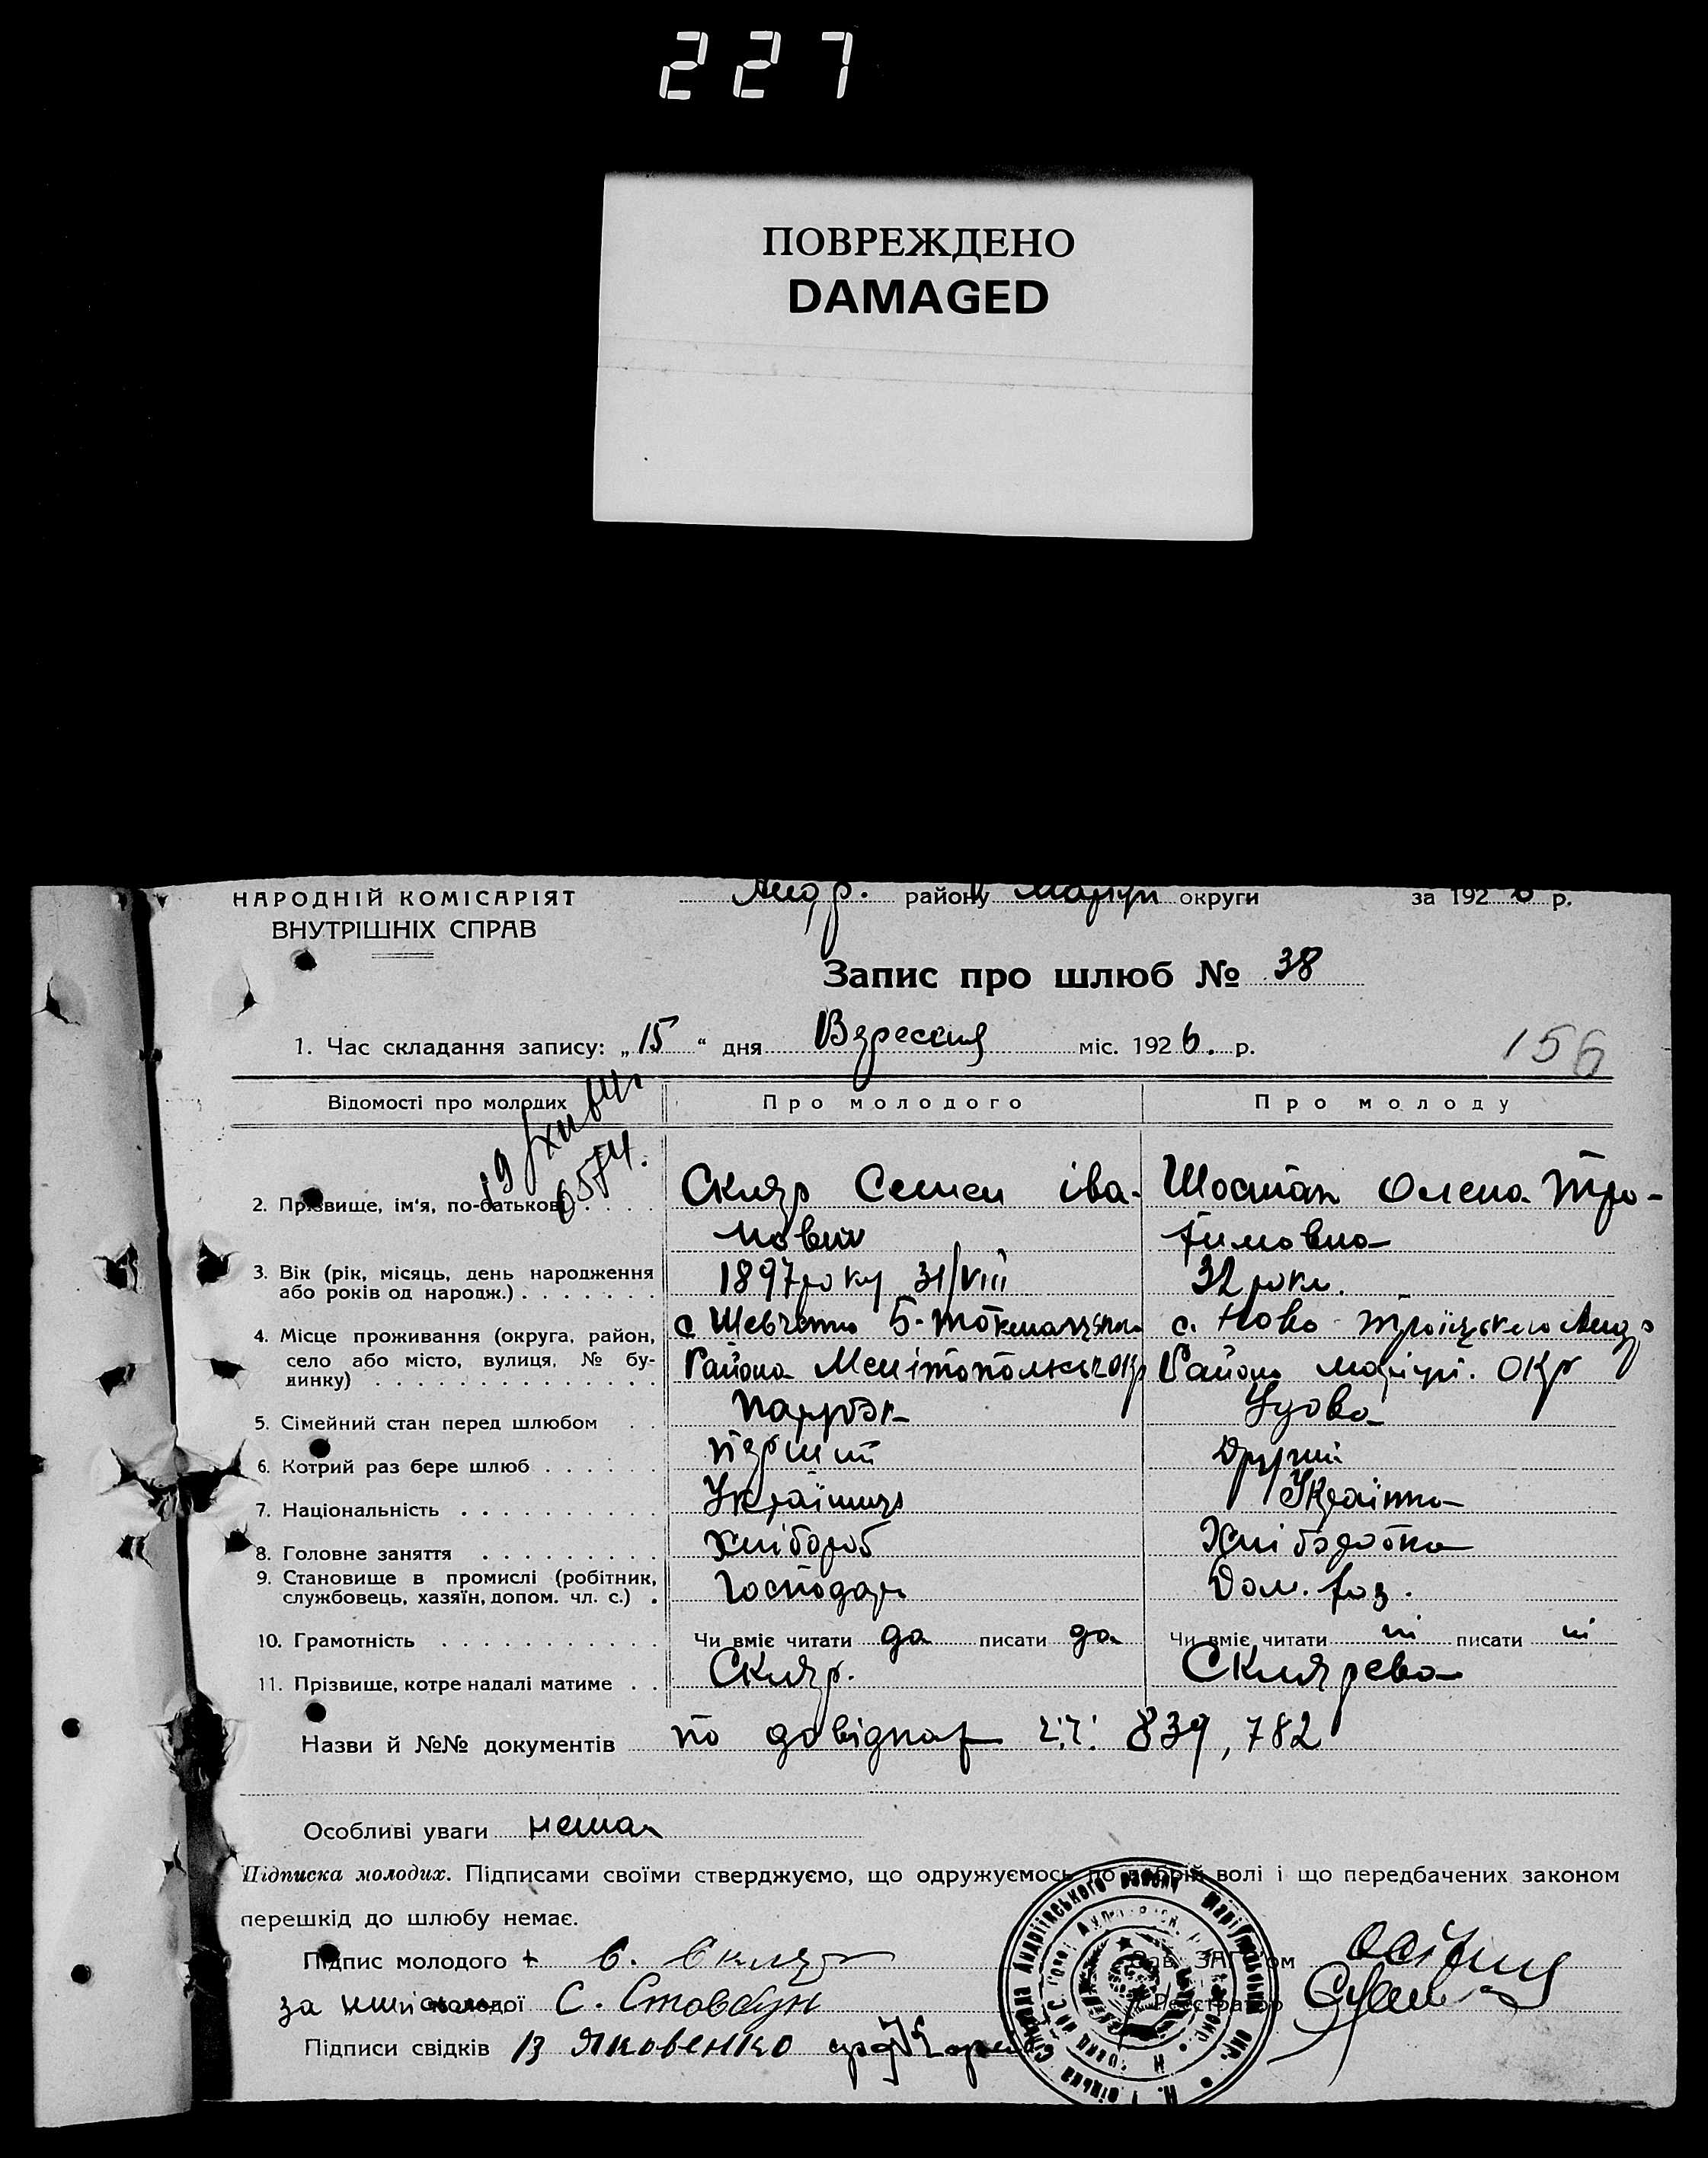 227
ПОВРЕЖДЕНО
DAMAGED
НАРОДНІЙ КОМІСАРІЯТ
ВНУТРІШНІХ СПРАВ
Андр. району Маріуп округи за 1926 р.
Запис про шлюб № 38
1. Час складання запису: „15“ дня Вересня міс. 1926. р.
156
Відомості про молодих
Про молодого
Про молоду
2. Прізвище, ім'я, по-батькові
Скляр Семен Іва-
нович
Шостак Олена Тро-
химовна
3. Вік (рік, місяць, день народження
або років од народж.)
1897 року 31/VIII
32 роки.
4. Місце проживання (округа, район,
село або місто, вулиця, № бу-
динку)
с Шевченко Б-Токмацького
Района Мелітопольськ окр
с. Ново-Троїцьког Андр
Району маріуп. окр
5. Сімейний стан перед шлюбом
парубок
Удова
6. Котрий раз бере шлюб
перший
Другий
7. Національність
Українець
Українка
8. Головне заняття
Хлібороб
Хліборобка
9. Становище в промислі (робітник,
службовець, хазяїн, допом. чл. с.)
Господарь
Дом. хоз.
10. Грамотність
Чи вміє читати да писати да
Чи вміє читати ні писати ні
11. Прізвище, котре надалі матиме
Скляр.
Склярева
Назви й №№ документів по довідках ч.ч. 839, 782
Особливі уваги немає
Підписка молодих. Підписами своїми стверджуємо, що одружуємось по добрій волі і що передбачених законом
перешкід до шлюбу немає.
Підпис молодого + С. Скляр
Зав. ЗАГ'ом
за молодої С. Стовбун
Реєстратор
Підписи свідків В Яковенко